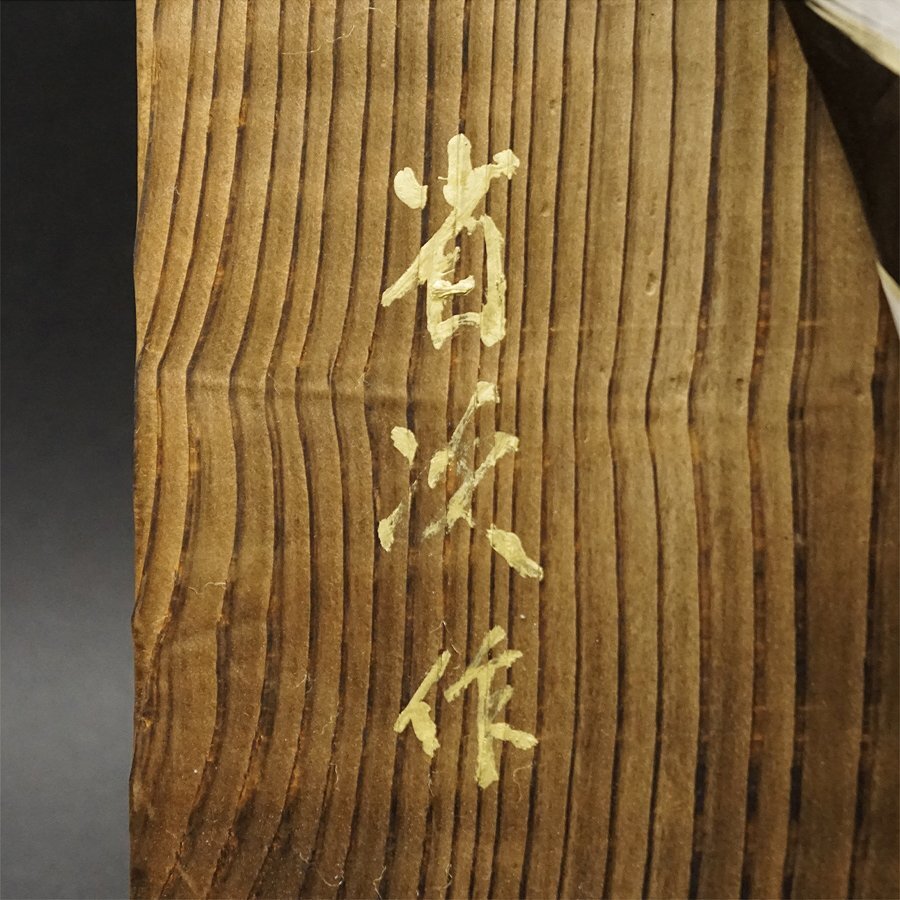 省次作